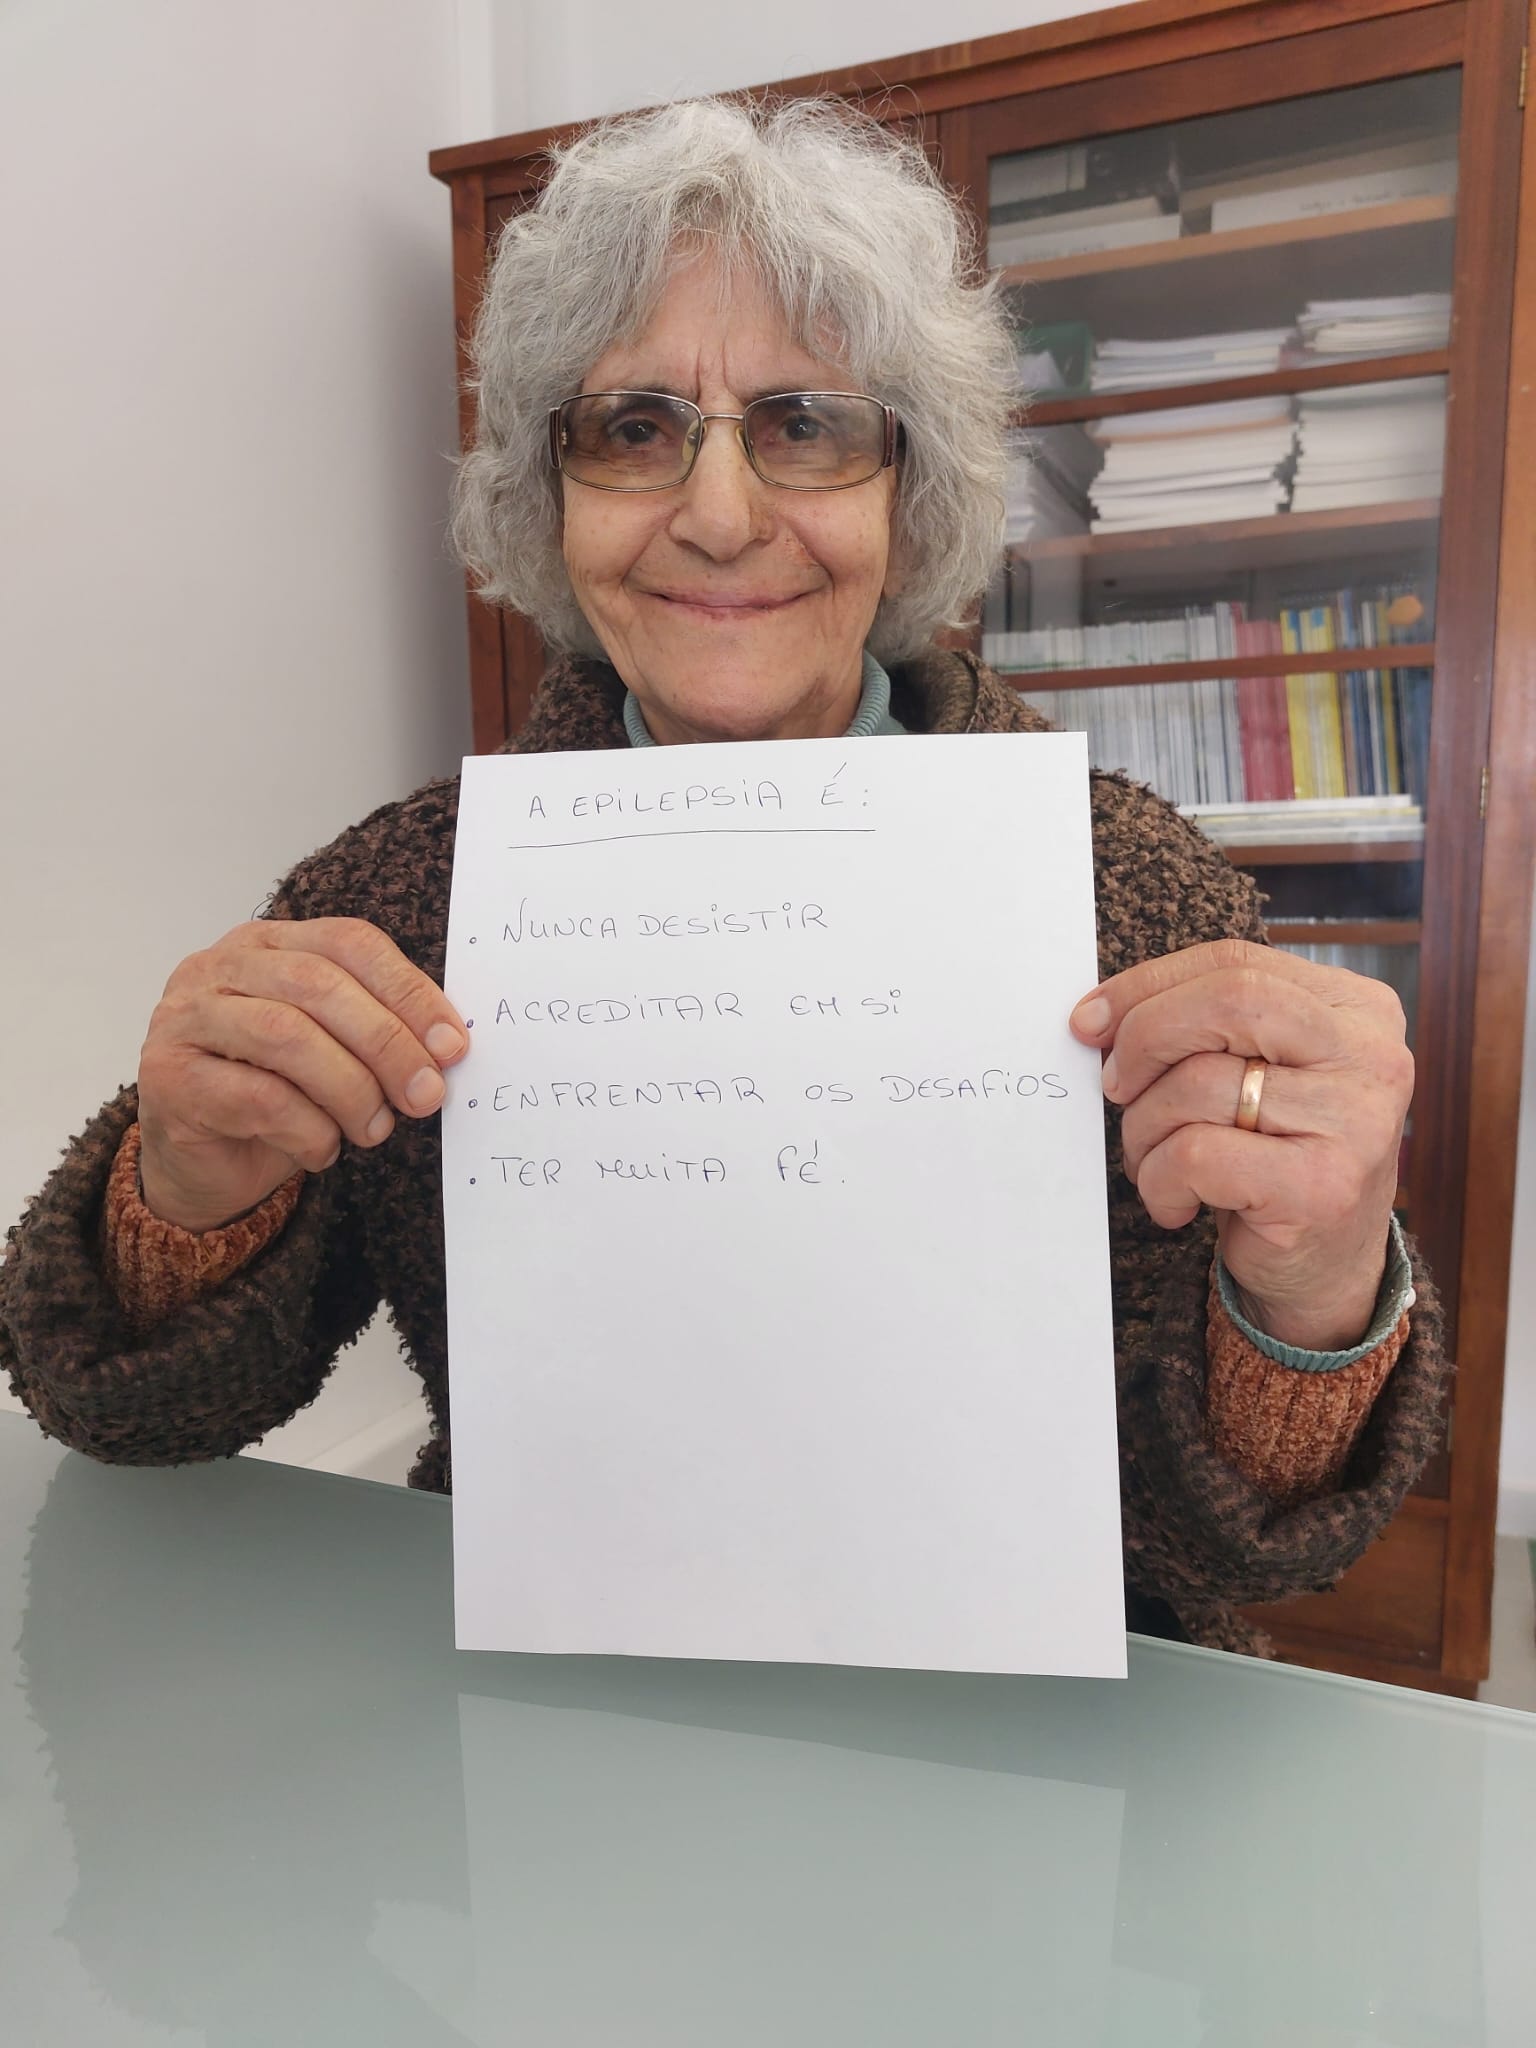 A EPILEPSIA É:
. NUNCA DESISTIR
. ACREDITAR EM SI
. ENFRENTAR OS DESAFIOS
. TER MUITA FÉ.